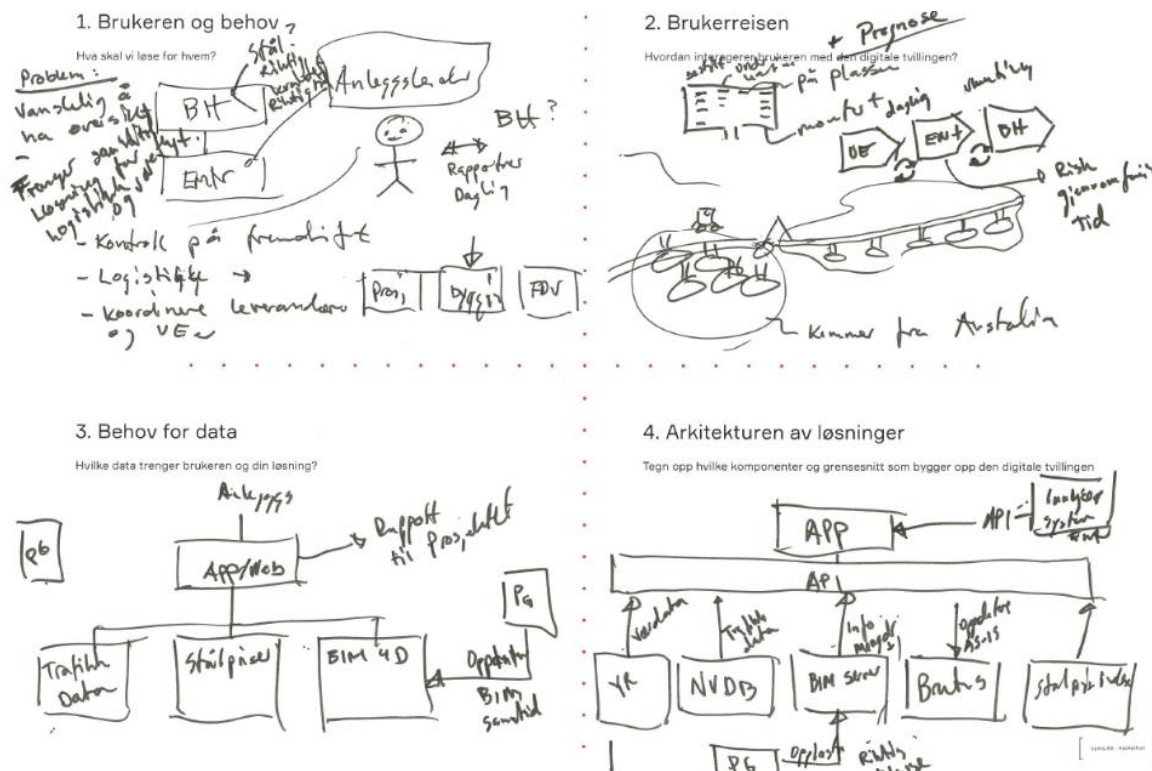 1. Brukeren og behov
Hva skal vi løse for hvem?
Problem:
Vanskelig å
ha oversikt
BH
Stål?
Riktig
Anleggsleder
BH?
Entr
Rapporter
Daglig
- Kontroll på fremdrift
- Logistikk
- Koordinere leverandører
og UE
Prosj
bygging
FDV
2. Brukerreisen
+ Prognose
Hvordan interagerer brukeren med den digitale tvillingen?
på plassen
montert daglig
UE
ENT
BH
Risk
gjennomføring
tid
Kommer fra Australia
3. Behov for data
Hvilke data trenger brukeren og din løsning?
Anleggs
PG
App/Web
Rapport
til Prosjektet
PG
Trafikk
Data
Stålpriser
BIM 4D
BIM
samtid
4. Arkitekturen av løsninger
Tegn opp hvilke komponenter og grensesnitt som bygger opp den digitale tvillingen
APP
API
system
API
Værdata
Trafikk
data
Info
AS-IS
YR
NVDB
BIM Server
Brutus
Stålprisindex
PG
Opplast